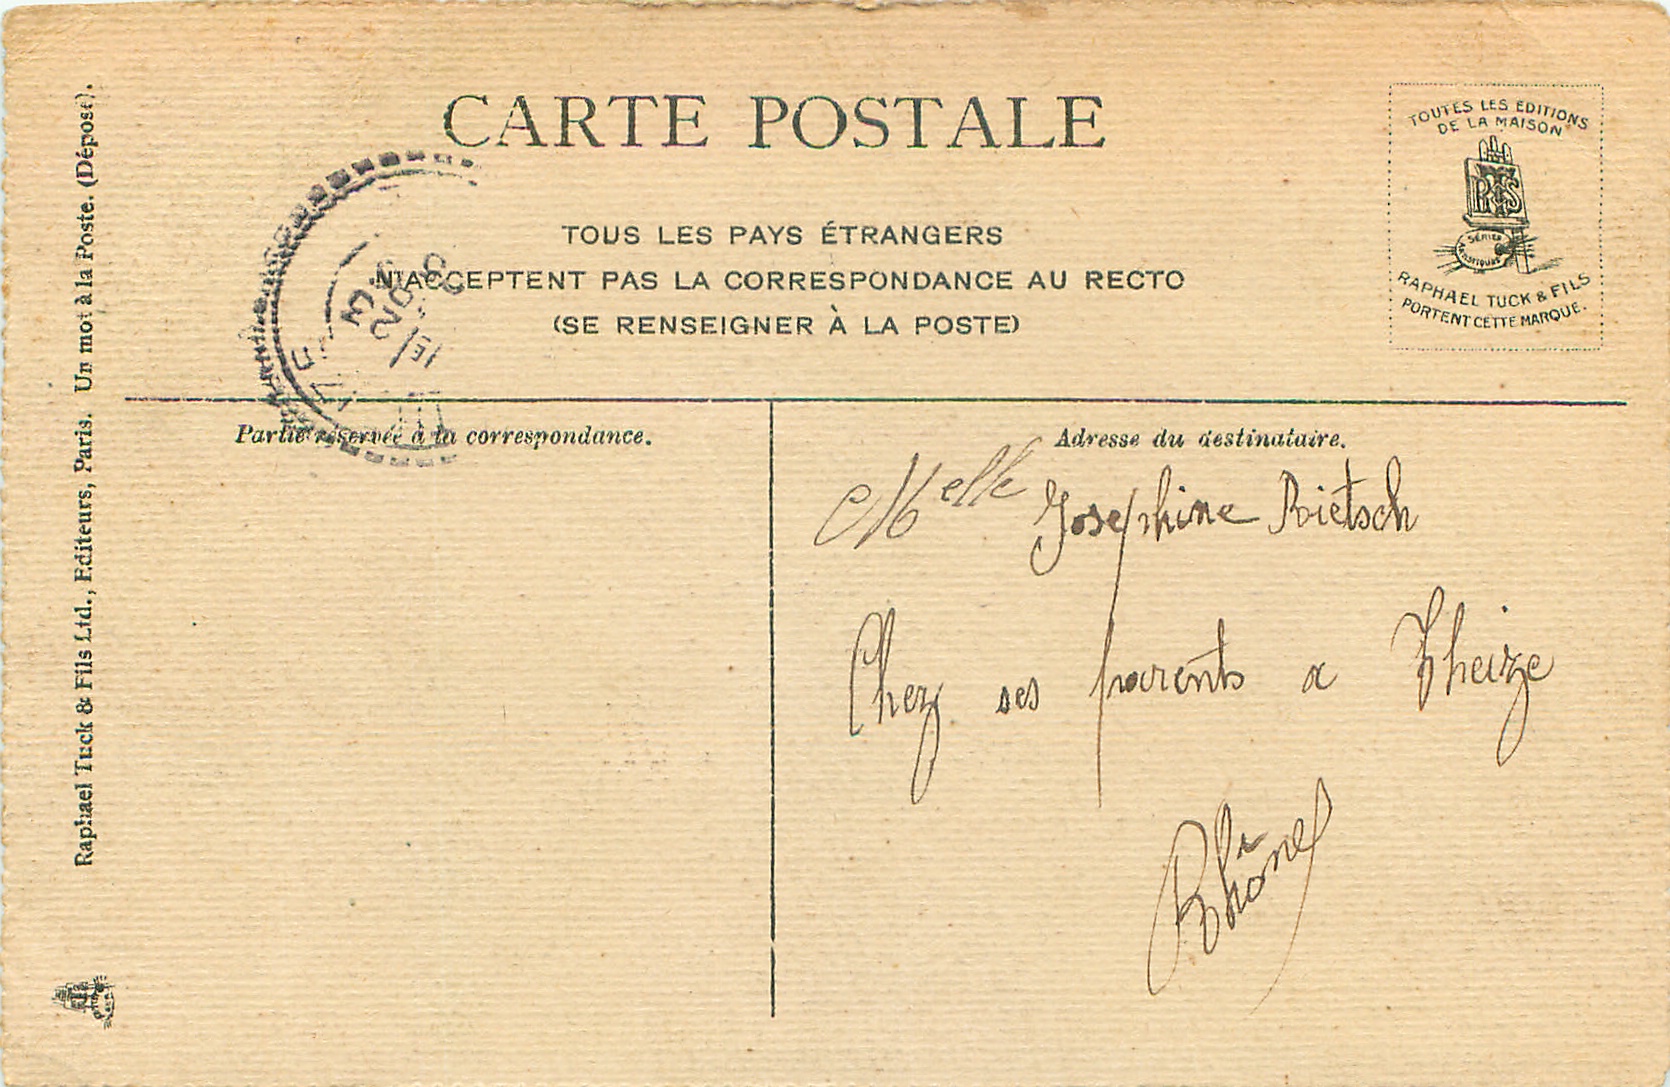 CARTE POSTALE
TOUTES LES ÉDITIONS
DE LA MAISON
RTS
SÉRIES
ARTISTIQUES
RAPHAEL TUCK & FILS
PORTENT CETTE MARQUE.
TOUS LES PAYS ÉTRANGERS
N'ACCEPTENT PAS LA CORRESPONDANCE AU RECTO
(SE RENSEIGNER À LA POSTE)
Raphael Tuck & Fils Ltd., Editeurs, Paris. Un mot à la Poste. (Déposé).
Partie réservée à la correspondance.
Adresse du destinataire.
Melle Josephine Rietsch
Chez ses parents a Theize
Rhône